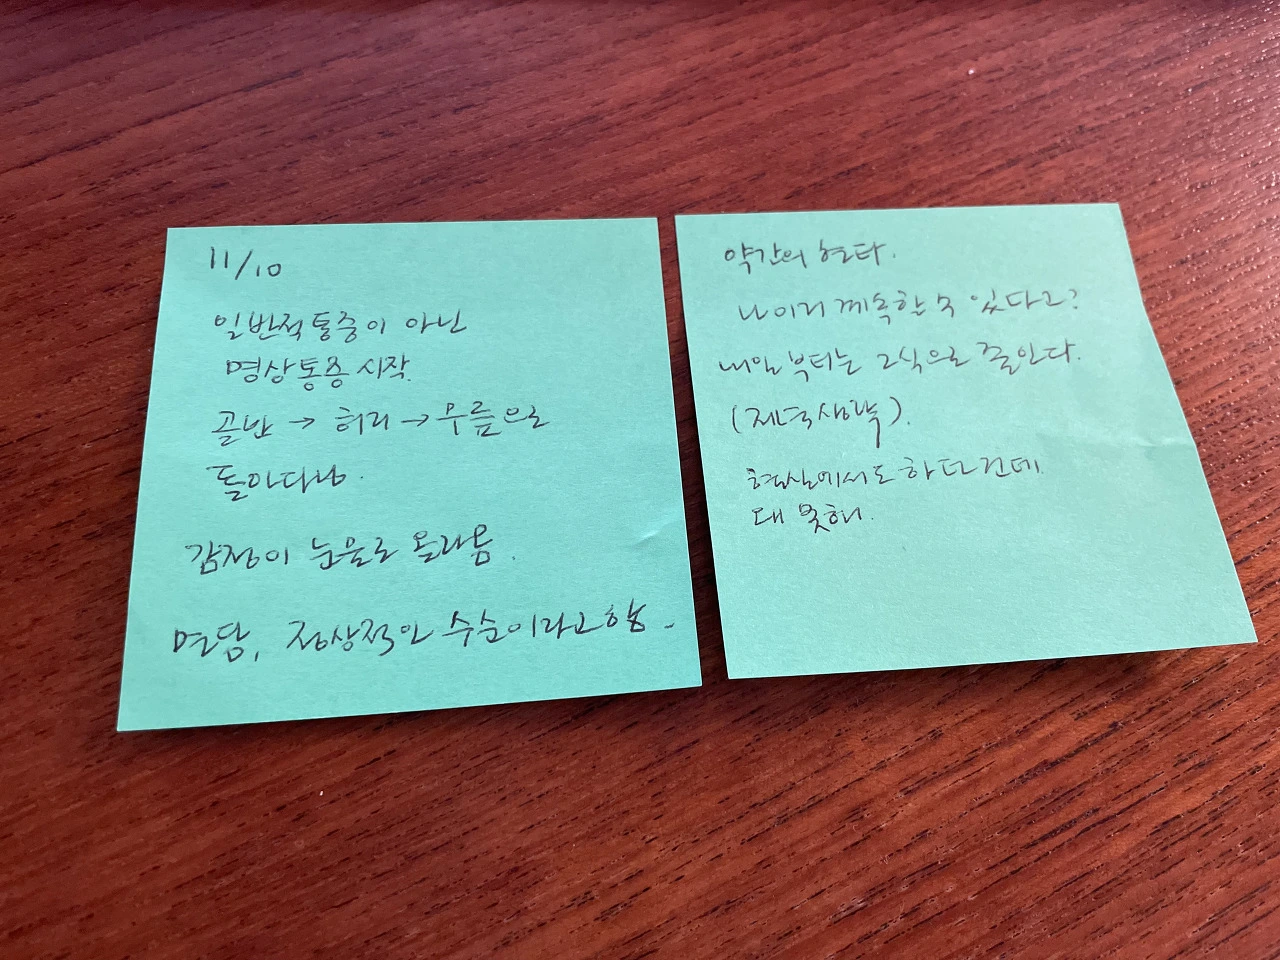 11/10
일반적 통증이 아닌
명상통증 시작.
골반 → 허리 → 무릎으로
돌아다님.
감정이 눈물로 올라옴.
면담, 정상적인 수순이라고 함.
약간의 현타.
나 이거 계속할 수 있다고?
내일부터는 2식으로 줄인다.
(저녁생략).
현실에서도 하다 건데
왜 못해.